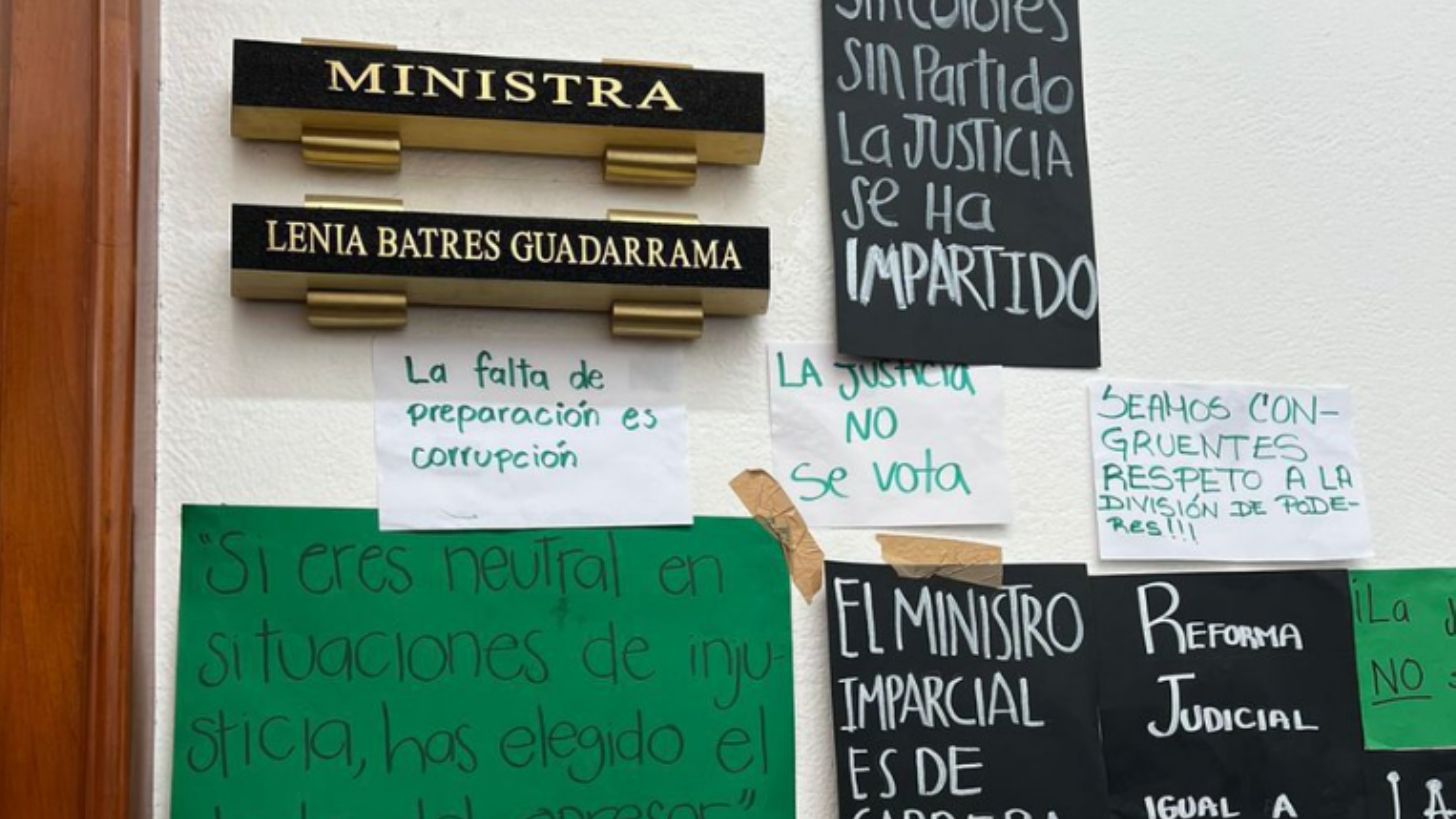 MINISTRA
LENIA BATRES GUADARRAMA
sin colores
sin Partido
La JUSTICIA
se Ha
IMPARTIDO
La falta de
preparación es
corrupción
LA JUSTICIA
NO
se vota
SEAMOS CON-
GRUENTES
RESPETO A LA
DIVISIÓN DE PODE-
Res!!!
"Si eres neutral en
situaciones de inju-
sticia, has elegido el
del opresor"
EL MINISTRO
IMPARCIAL
ES DE
CARRERA
REFORMA
JUDICIAL
IGUAL A
¡La
NO
LA